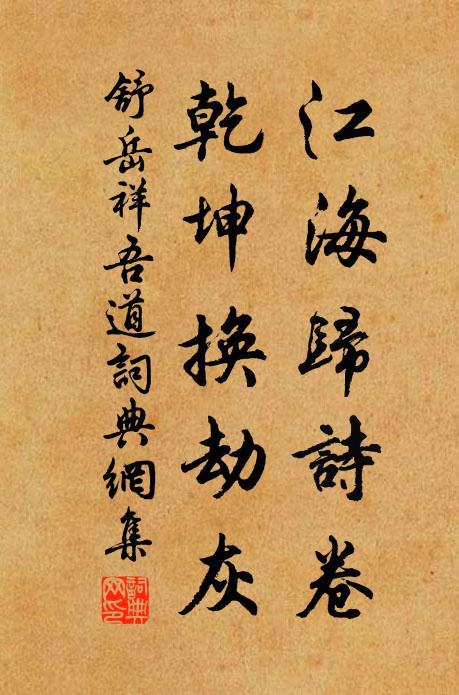 江海歸詩卷
乾坤換劫灰
舒岳祥吾道詞典網集
詞典
网印